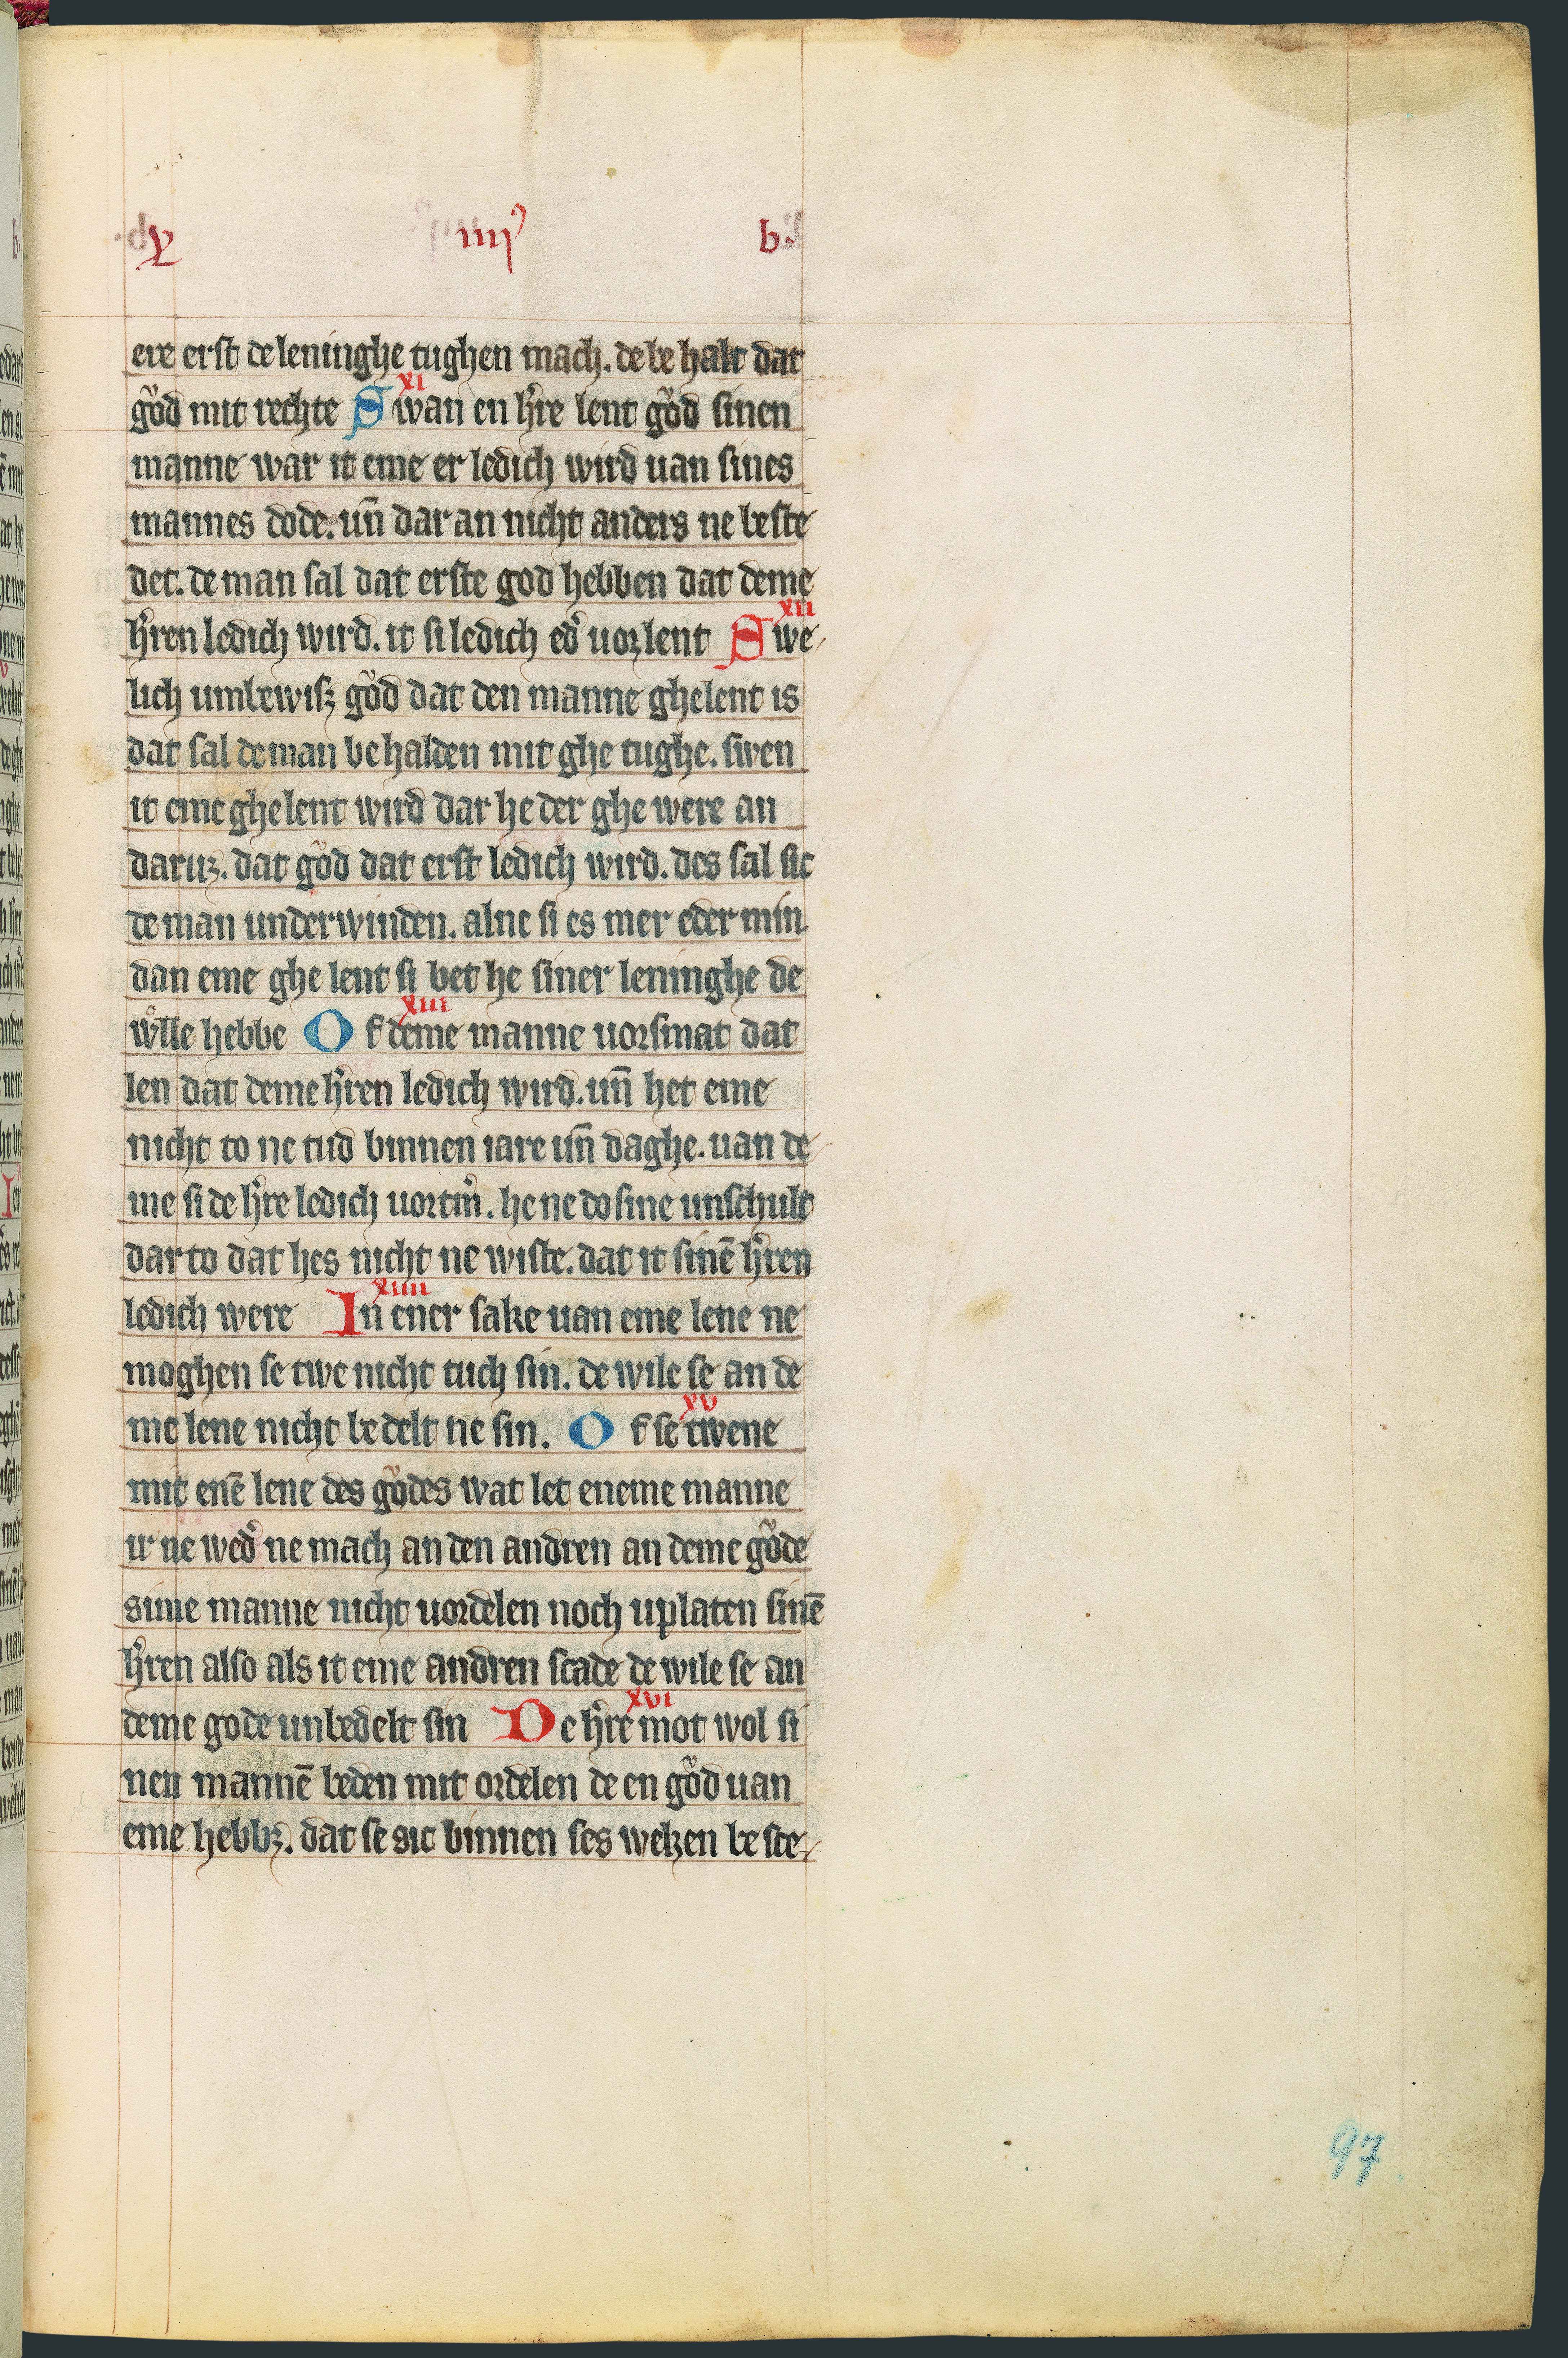 X iiij b.
ere erst de leninghe tughen mach. de be halt dat
xi
gůd mit rechte Swan en hrͤe lent gůd sinen
manne war it eme er ledich wird uan sines
mannes dode. un̄ dar an nicht anders ne beste
det. de man sal dat erste god hebben dat deme
xii
hrͤen ledich wird. it si ledich edʾ uorlent Swe
lich umbewisꝫ gůd dat den manne ghelent is
dat sal de man be halden mit ghe tughe. swen
it eme ghelent wird dar he der ghe were an
daruꝫ. dat gůd dat erst ledich wird. des sal sic
de man underwinden. alne si es mer eder min
dan eme ghe lent si bet he siner leninghe de
xiii
wͦlle hebbe Of deme manne uorsmat dat
len dat deme hrͤen ledich wird. un̄ het eme
nicht to ne tud binnen iare un̄ daghe. uan de
me si de hrͤe ledich uortmʾ. he ne do sine unschult
dar to dat hes nicht ne wiste. dat it sinē hrͤen
xiiii
ledich were In ener sake uan eme lene ne
moghen se twe nicht tuch sin. de wile se an de
xv
me lene nicht bedelt ne sin. Of se twene
mit enē lene des gůdes wat let eneme manne
ir ne wedʾ ne mach an den andren an deme gůde
sime manne nicht uordelen noch uplaten sinē
hrͤen also als it eme andren scade de wile se an
xvi
deme gode unbedelt sin De hrͤe mot wol si
nen mannē beden mit ordelen de en gůd uan
eme hebbꝫ. dat se sic binnen ses weken be ste
97